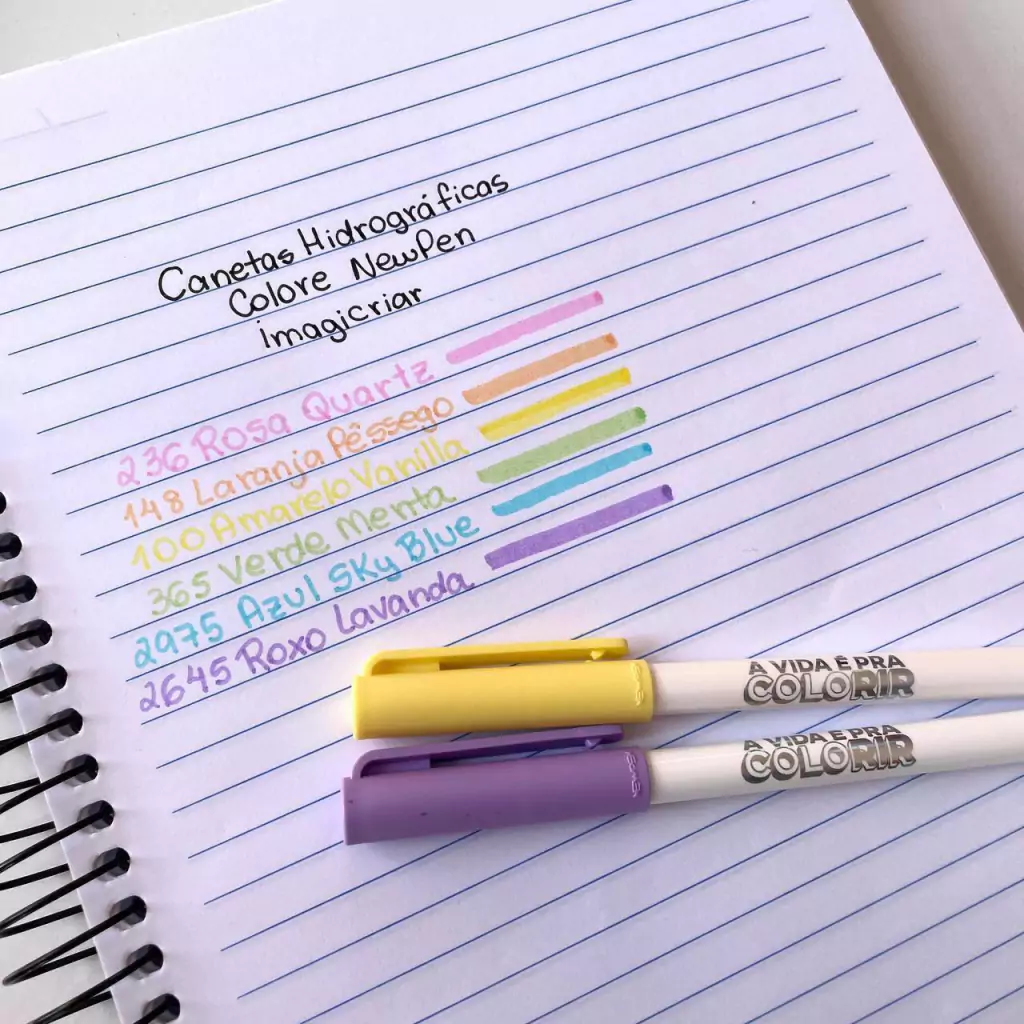 Canetas Hidrográficas
Colore NewPen
imagicriar
236 Rosa Quartz
148 Laranja Pêssego
100 Amarelo Vanilla
365 Verde Menta
2975 Azul Sky Blue
2645 Roxo Lavanda
A VIDA É PRA
COLORIR
A VIDA É PRA
COLORIR